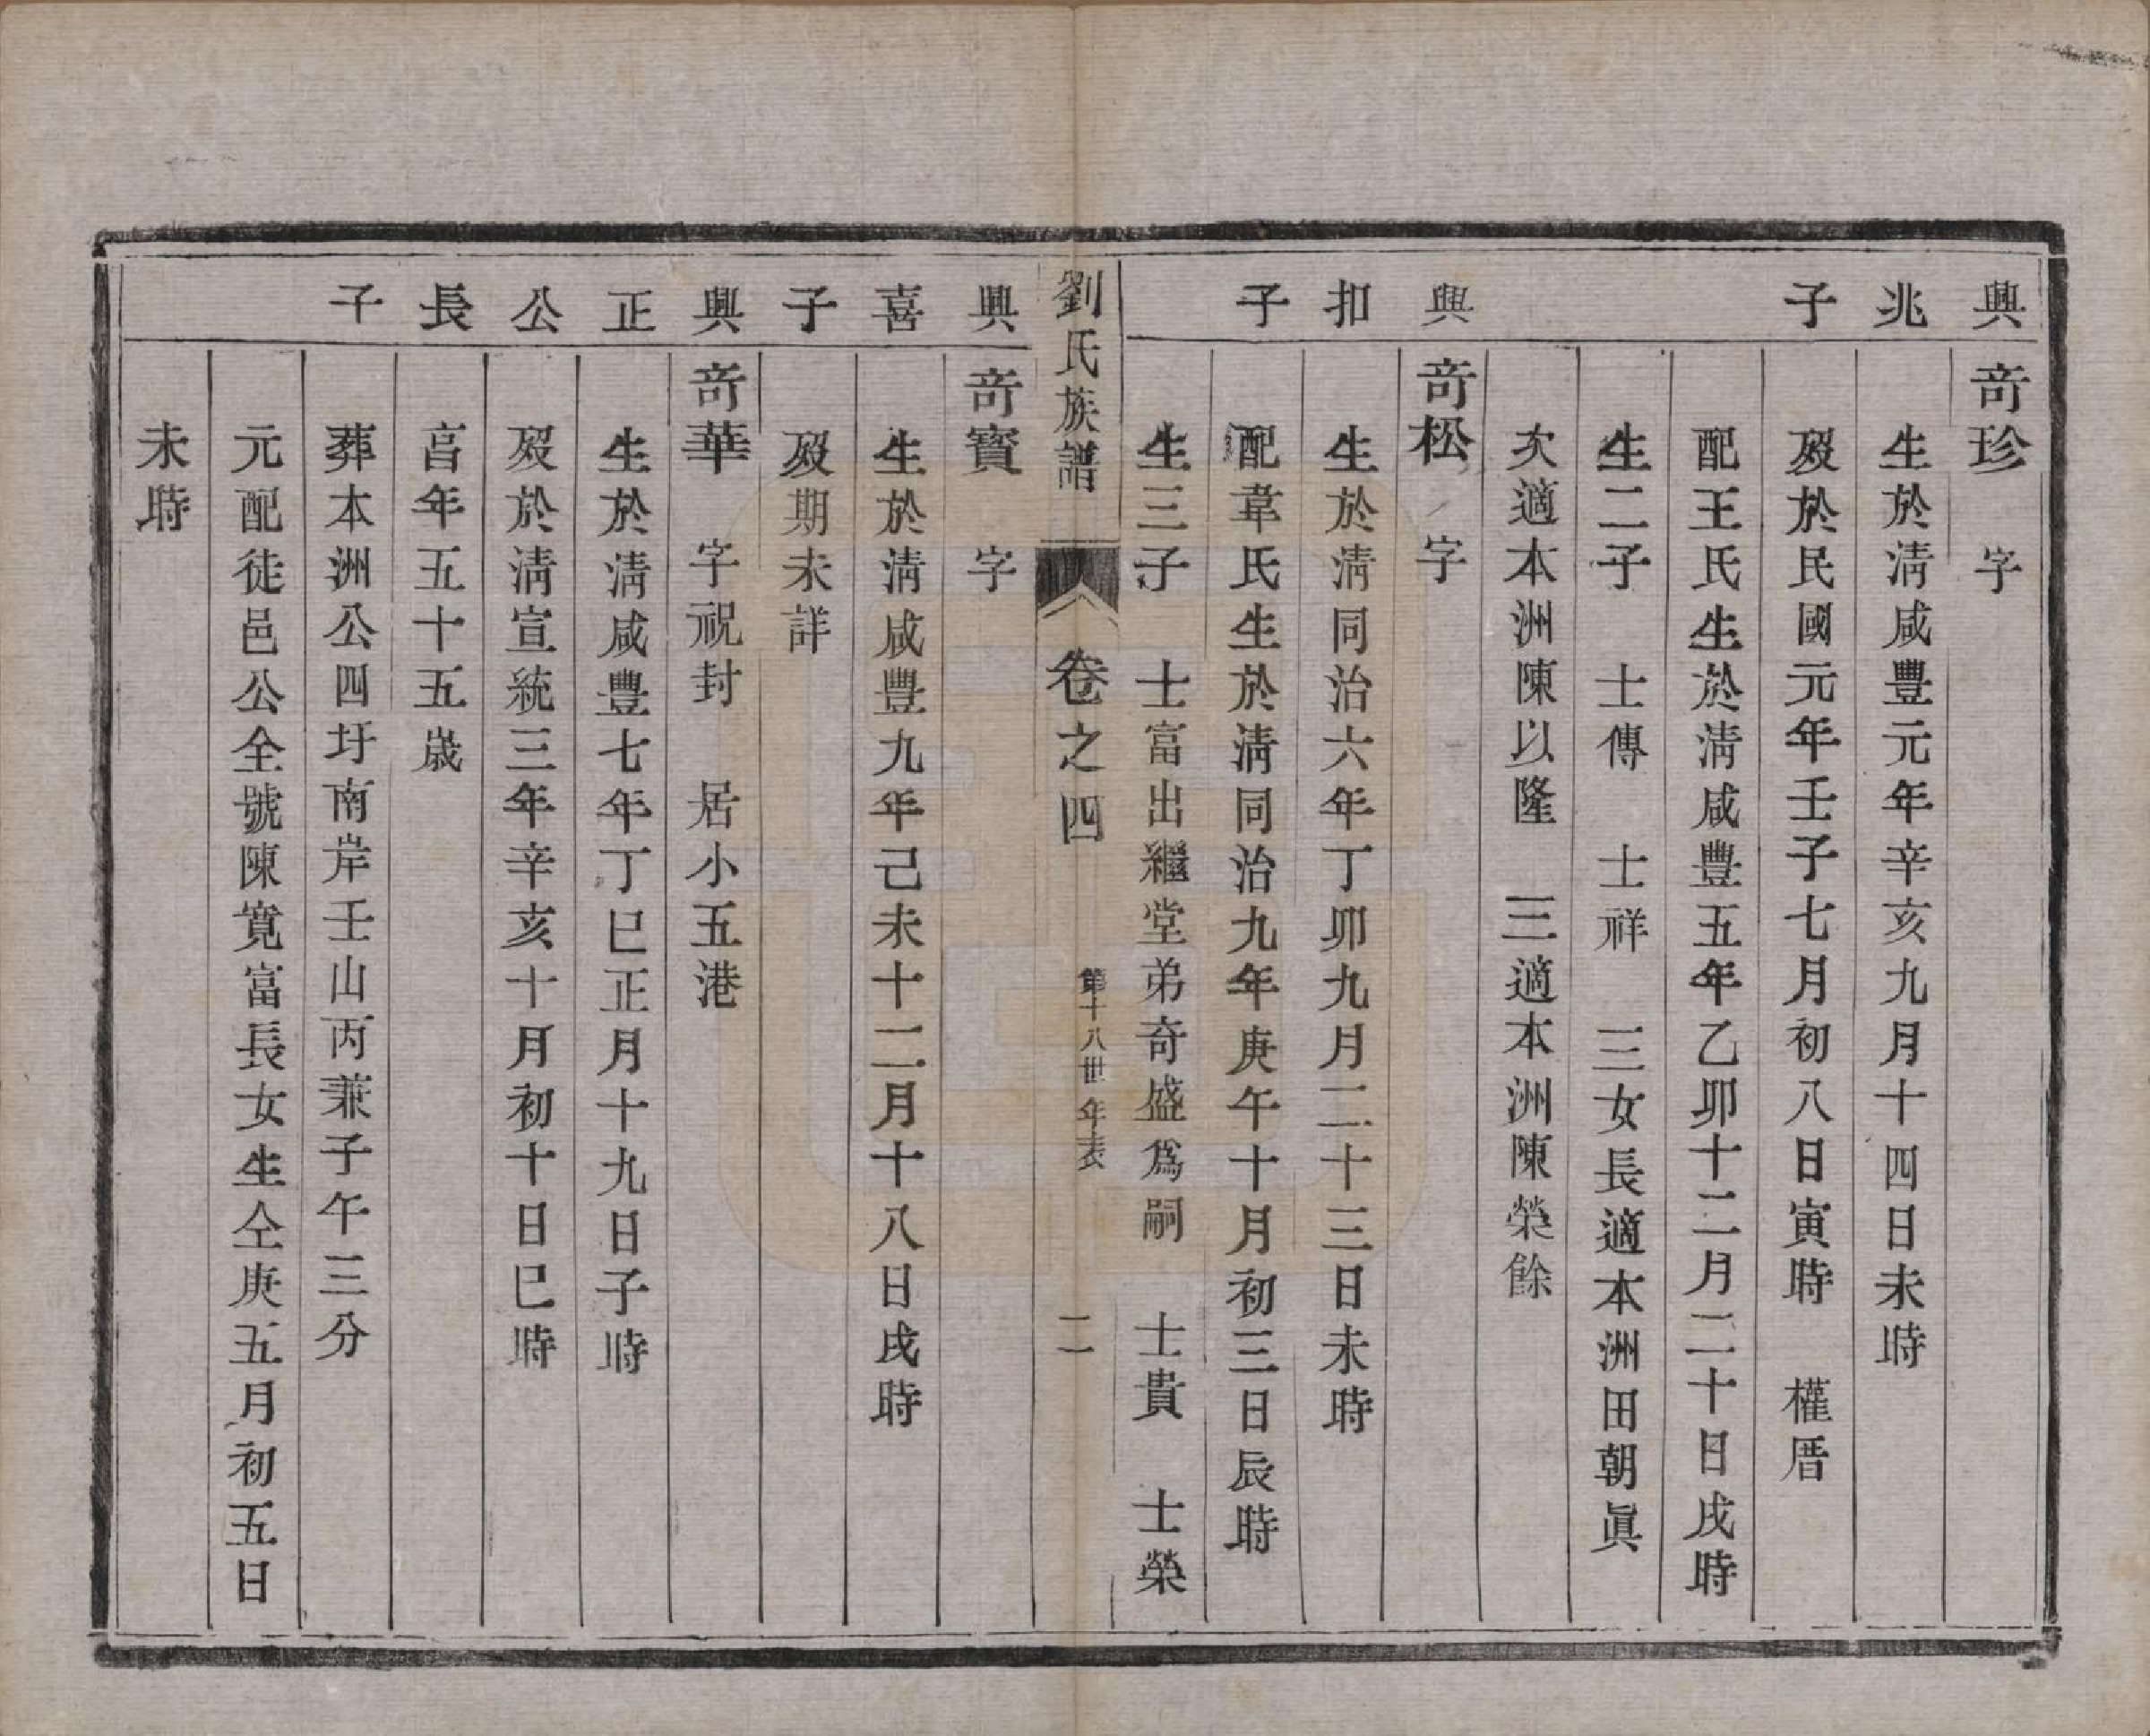 興 奇珍 字
兆 生於淸咸豐元年辛亥九月十四日未時
子 歿於民國元年壬子七月初八日寅時 權厝
配王氏生於淸咸豐五年乙卯十二月二十日戌時
生二子 士傳 士祥 三女長適本洲田朝眞
次適本洲陳以隆 三適本洲陳榮餘
興 奇松 字
扣 生於淸同治六年丁卯九月二十三日未時
子 配韋氏生於淸同治九年庚午十月初三日辰時
生三子 士富出繼堂弟奇盛爲嗣 士貴 士榮
劉氏族譜 卷之四 第十八世年表 二
興 奇寶 字
喜 生於淸咸豐九年己未十二月十八日戌時
子 歿期未詳
興 奇華 字祝封 居小五港
正 生於淸咸豐七年丁巳正月十九日子時
公 歿於淸宣統三年辛亥十月初十日巳時
長 享年五十五歲
子 葬本洲公四圩南岸壬山丙兼子午三分
元配徒邑公全號陳寬富長女生仝庚五月初五日
未時